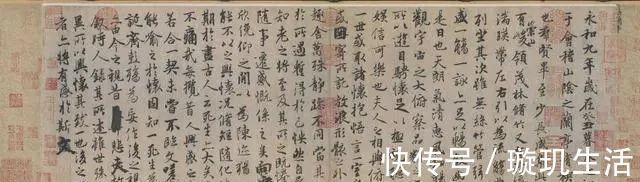 永和九年歲在癸丑
于會稽山陰之蘭亭
也羣賢畢至少長咸
崇山
有峻領茂林脩竹又
湍暎帶左右引以為流
列坐其次雖無絲竹管弦
盛一觴一詠亦足以
是日也天朗氣清惠風
觀宇宙之大俯察品類
所以遊目騁懷足以極
娛信可樂也夫人之相與
一世或取諸懷抱悟言一室
或因寄所託放浪形骸之外
趣舍萬殊靜躁不同當其
於所遇蹔得於己怏然自足
知老之將至及其所之既惓
隨事遷感慨係之矣向之
欣俛仰之閒以為陳迹猶
能不以之興懷況脩短隨化
期於盡古人云死生亦大矣
不痛哉每攬昔人興感之
若合一契未嘗不臨文嗟
能喻之於懷固知一死生
誕齊彭殤為妄作後之視
亦由今之視昔悲夫故
敘時人錄其所述雖世殊
異所以興懷其致一也後之
者亦將有感於斯文
快传号／璇玑生活